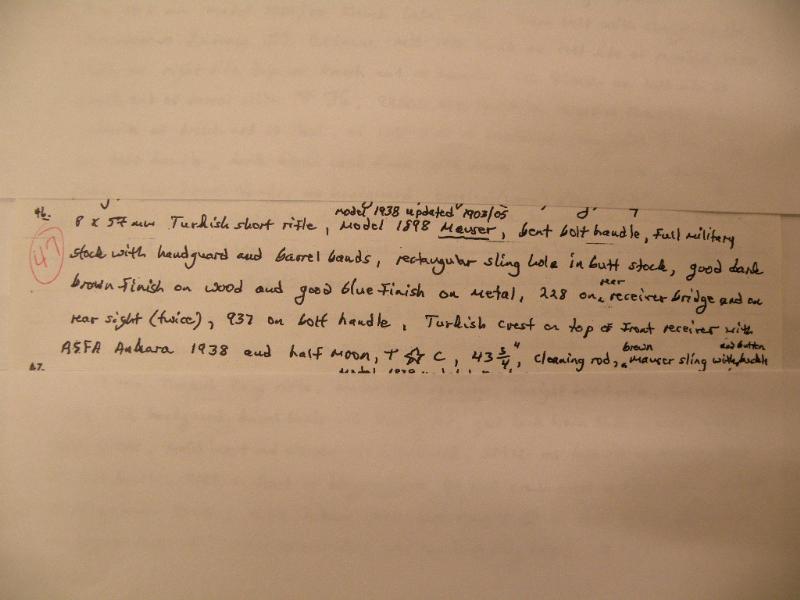 46.
47
model 1938 updated 1903/05
8 x 57 mm Turkish short rifle, Model 1898 Mauser, bent bolt handle, full military
stock with handguard and barrel bands, rectangular sling hole in butt stock, good dark
rear
brown finish on wood and good blue finish on metal, 228 on receiver bridge and on
rear sight (twice), 937 on bolt handle, Turkish crest on top of front receiver with
brown and button
ASFA Ankara 1938 and half moon, T ☆ C, 43 3/4", cleaning rod, Mauser sling with buckle